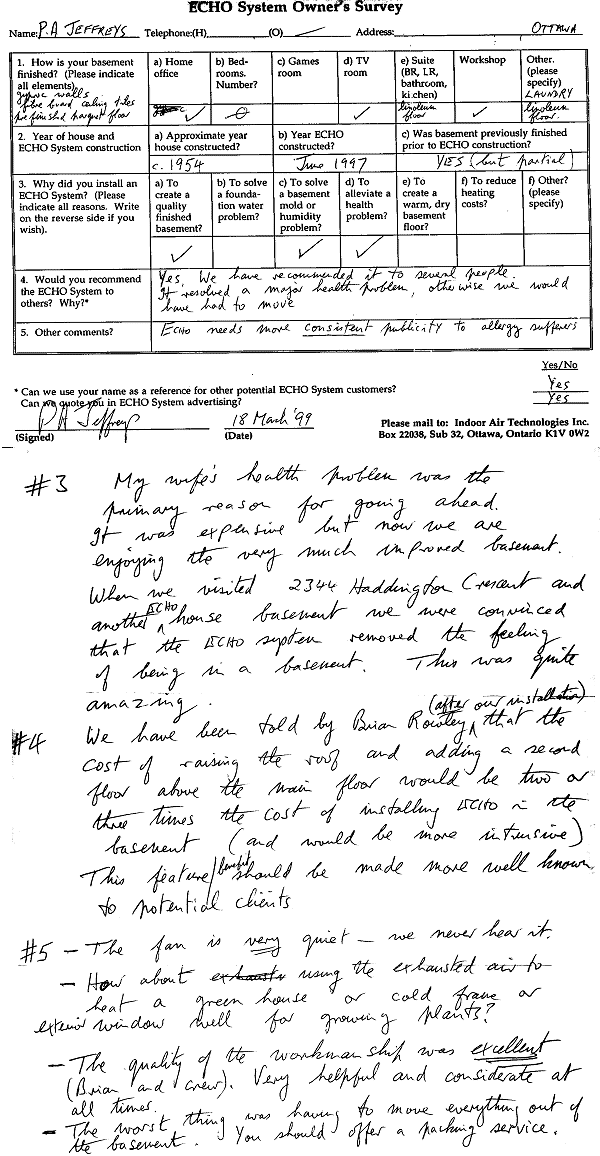 ECHO System Owner's Survey
Name: P.A JEFFREYS Telephone:(H) (O) Address: OTTAWA
1. How is your basement finished? (Please indicate all elements)
gyproc walls
fibre board ceiling tiles
prefinished parquet floor
a) Home office ✓
b) Bed-rooms. Number? 0
c) Games room
d) TV room ✓
e) Suite (BR, LR, bathroom, kitchen) linoleum floor
Workshop ✓
Other. (please specify) LAUNDRY linoleum floor.
2. Year of house and ECHO System construction
a) Approximate year house constructed? c. 1954
b) Year ECHO constructed? June 1997
c) Was basement previously finished prior to ECHO construction? YES (but partial)
3. Why did you install an ECHO System? (Please indicate all reasons. Write on the reverse side if you wish).
a) To create a quality finished basement? ✓
b) To solve a founda-tion water problem?
c) To solve a basement mold or humidity problem? ✓
d) To alleviate a health problem? ✓
e) To create a warm, dry basement floor?
f) To reduce heating costs?
f) Other? (please specify)
4. Would you recommend the ECHO System to others? Why?*
Yes, We have recommended it to several people.
It resolved a major health problem, otherwise we would
have had to move
5. Other comments?
ECHO needs more consistent publicity to allergy sufferers
Yes/No
* Can we use your name as a reference for other potential ECHO System customers? Yes
Can we quote you in ECHO System advertising? Yes
PA Jeffreys 18 March '99
(Signed) (Date)
Please mail to: Indoor Air Technologies Inc.
Box 22038, Sub 32, Ottawa, Ontario K1V 0W2
#3 My wife's health problem was the
primary reason for going ahead.
It was expensive but now we are
enjoying the very much improved basement.
When we visited 2344 Haddington Crescent and
another ECHO house basement we were convinced
that the ECHO system removed the feeling
of being in a basement. This was quite
amazing.
#4 We have been told by Brian Rowley (after our installation) that the
cost of raising the roof and adding a second
floor above the main floor would be two or
three times the cost of installing ECHO in the
basement (and would be more intrusive)
This feature/benefit should be made more well known
to potential clients
#5 - The fan is very quiet - we never hear it.
- How about using the exhausted air to
heat a green house or cold frame or
exterior window well for growing plants?
- The quality of the workmanship was excellent
(Brian and crew). Very helpful and considerate at
all times.
- The worst thing was having to move everything out of
the basement. You should offer a packing service.